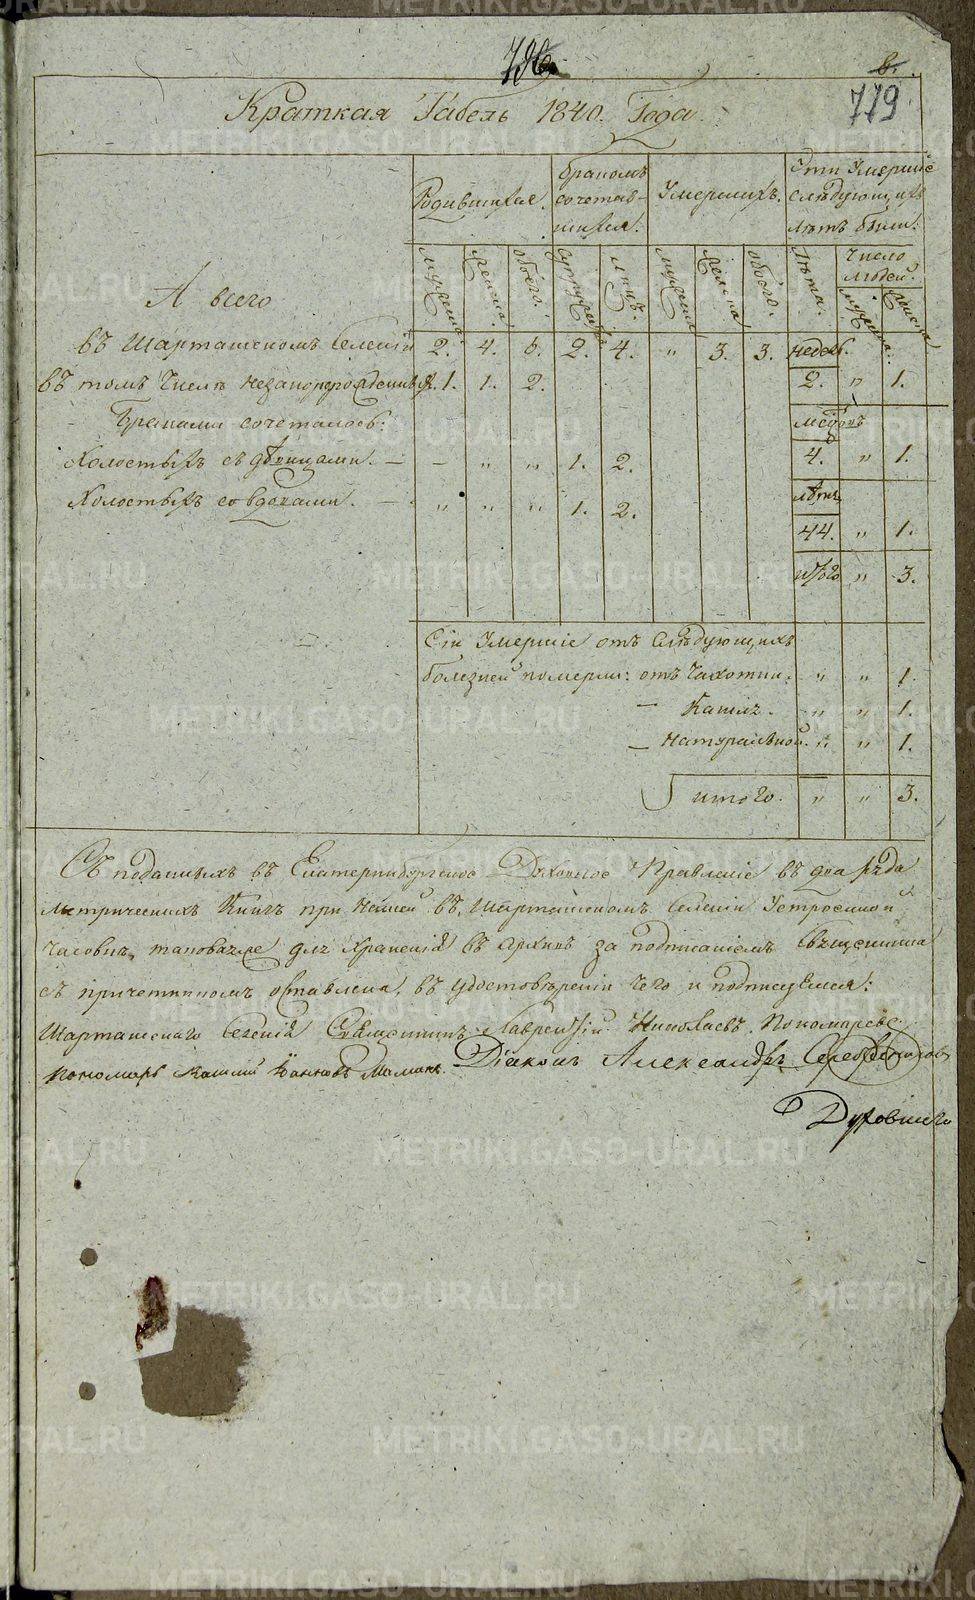 в.
779
Краткая Табель 1840. Года.
Родившихся.
Бракомъ сочетав-
шихся.
Умершихъ.
Сти Умершіе
слѣдующихъ
лѣтъ были.
мужеска.
женска.
обоего.
супружествъ
лицъ.
мужеска
женска
обоего.
Лѣта.
Число
людей.
мужеска.
женска
А всего
въ Шарташскомъ селеніи 2. 4. 6. 2. 4. " 3. 3. недѣль.
въ томъ числѣ незаконорожденныхъ. 1. 1. 2. 2. " 1.
Браками сочеталось: мѣсяцовъ
Холостыхъ съ дѣвицами. — — " " 1. 2. 4. " 1.
Холостыхъ со вдовами. — " " " 1. 2. лѣтъ
44. " 1.
итого " 3.
Сіи Умершіе отъ слѣдующихъ
болезней померли: отъ Чахотки. " " 1.
— Кашля. " " 1.
— Натуральной. " " 1.
итого. " " 3.
Съ поданныхъ въ Екатеринбургское Духовное Правленіе въ два ряда
Метрическихъ Книгъ при нашей въ Шарташскомъ Селеніи Устроенной
Часовнѣ, таковаяже для Храненія въ Архивѣ за подписаніемъ Священника
съ причетникомъ оставлена, въ удостовѣреніи чего и подписуемся:
Шарташскаго Селенія Священникъ Лаврентій Николаевъ Пономаревъ
Пономарь Діаконъ Александръ
Духовнаго
METRIKI.GASO-URAL.RU